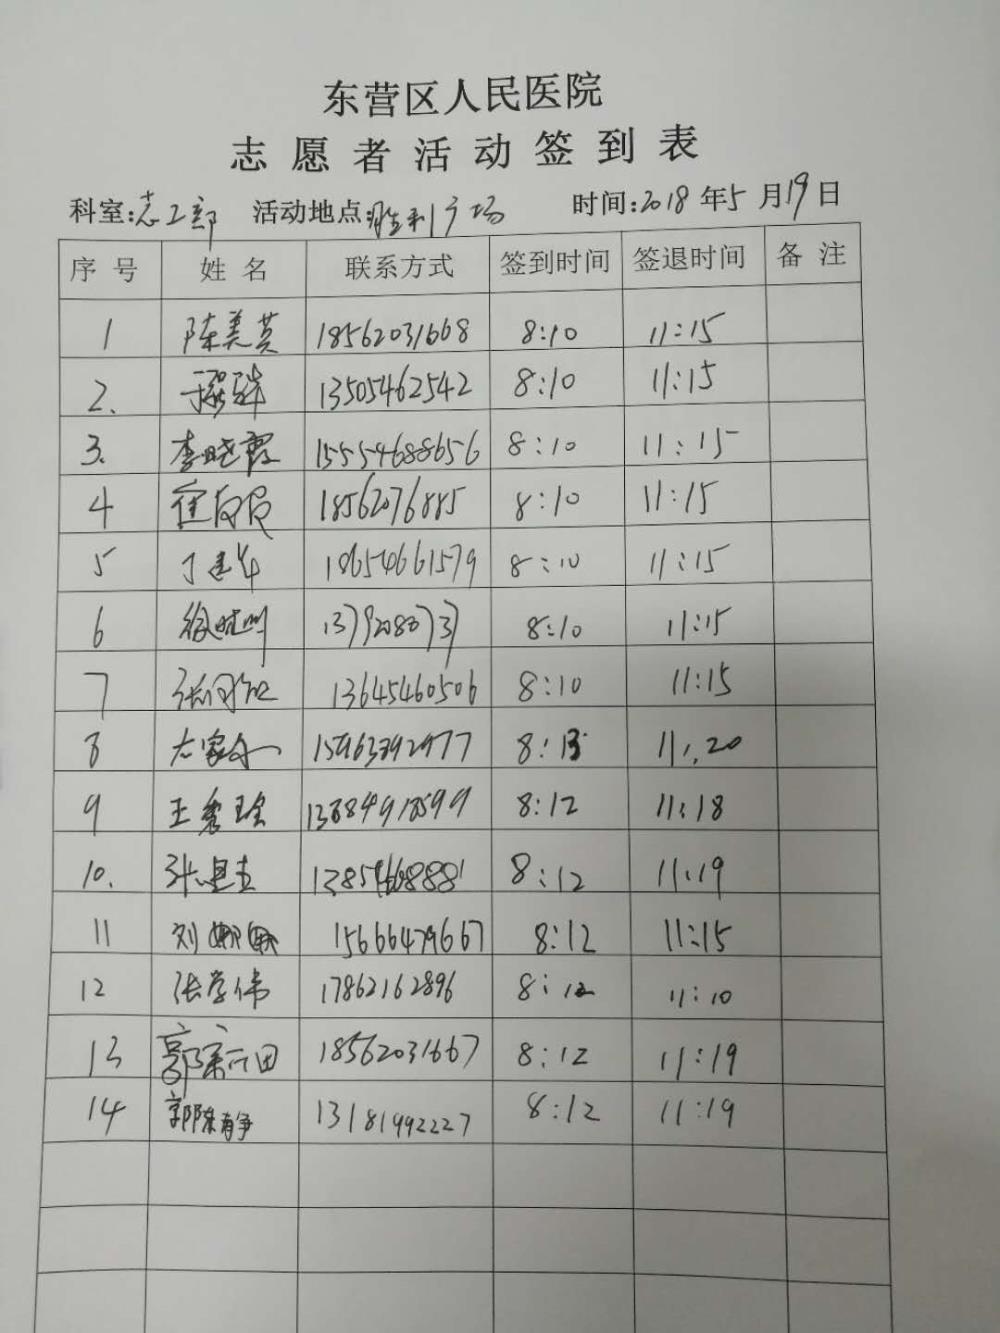 东营区人民医院
志愿者活动签到表
科室:志工部 活动地点胜利广场 时间:2018年5月19日
序号 姓名 联系方式 签到时间 签退时间 备注
1 陈美英 18562031668 8:10 11:15
2. 13505462542 8:10 11:15
3. 李晓霞 15554688656 8:10 11:15
4 18562076885 8:10 11:15
5 丁建华 18654661579 8:10 11:15
6 8:10 11:15
7 13645460506 8:10 11:15
8 8:13 11:20
9 王秀玲 8:12 11:18
10. 8:12 11:19
11 刘娜娜 15666479667 8:12 11:15
12 张学伟 17862162896 8:12 11:10
13 18562031667 8:12 11:19
14 13181992227 8:12 11:19